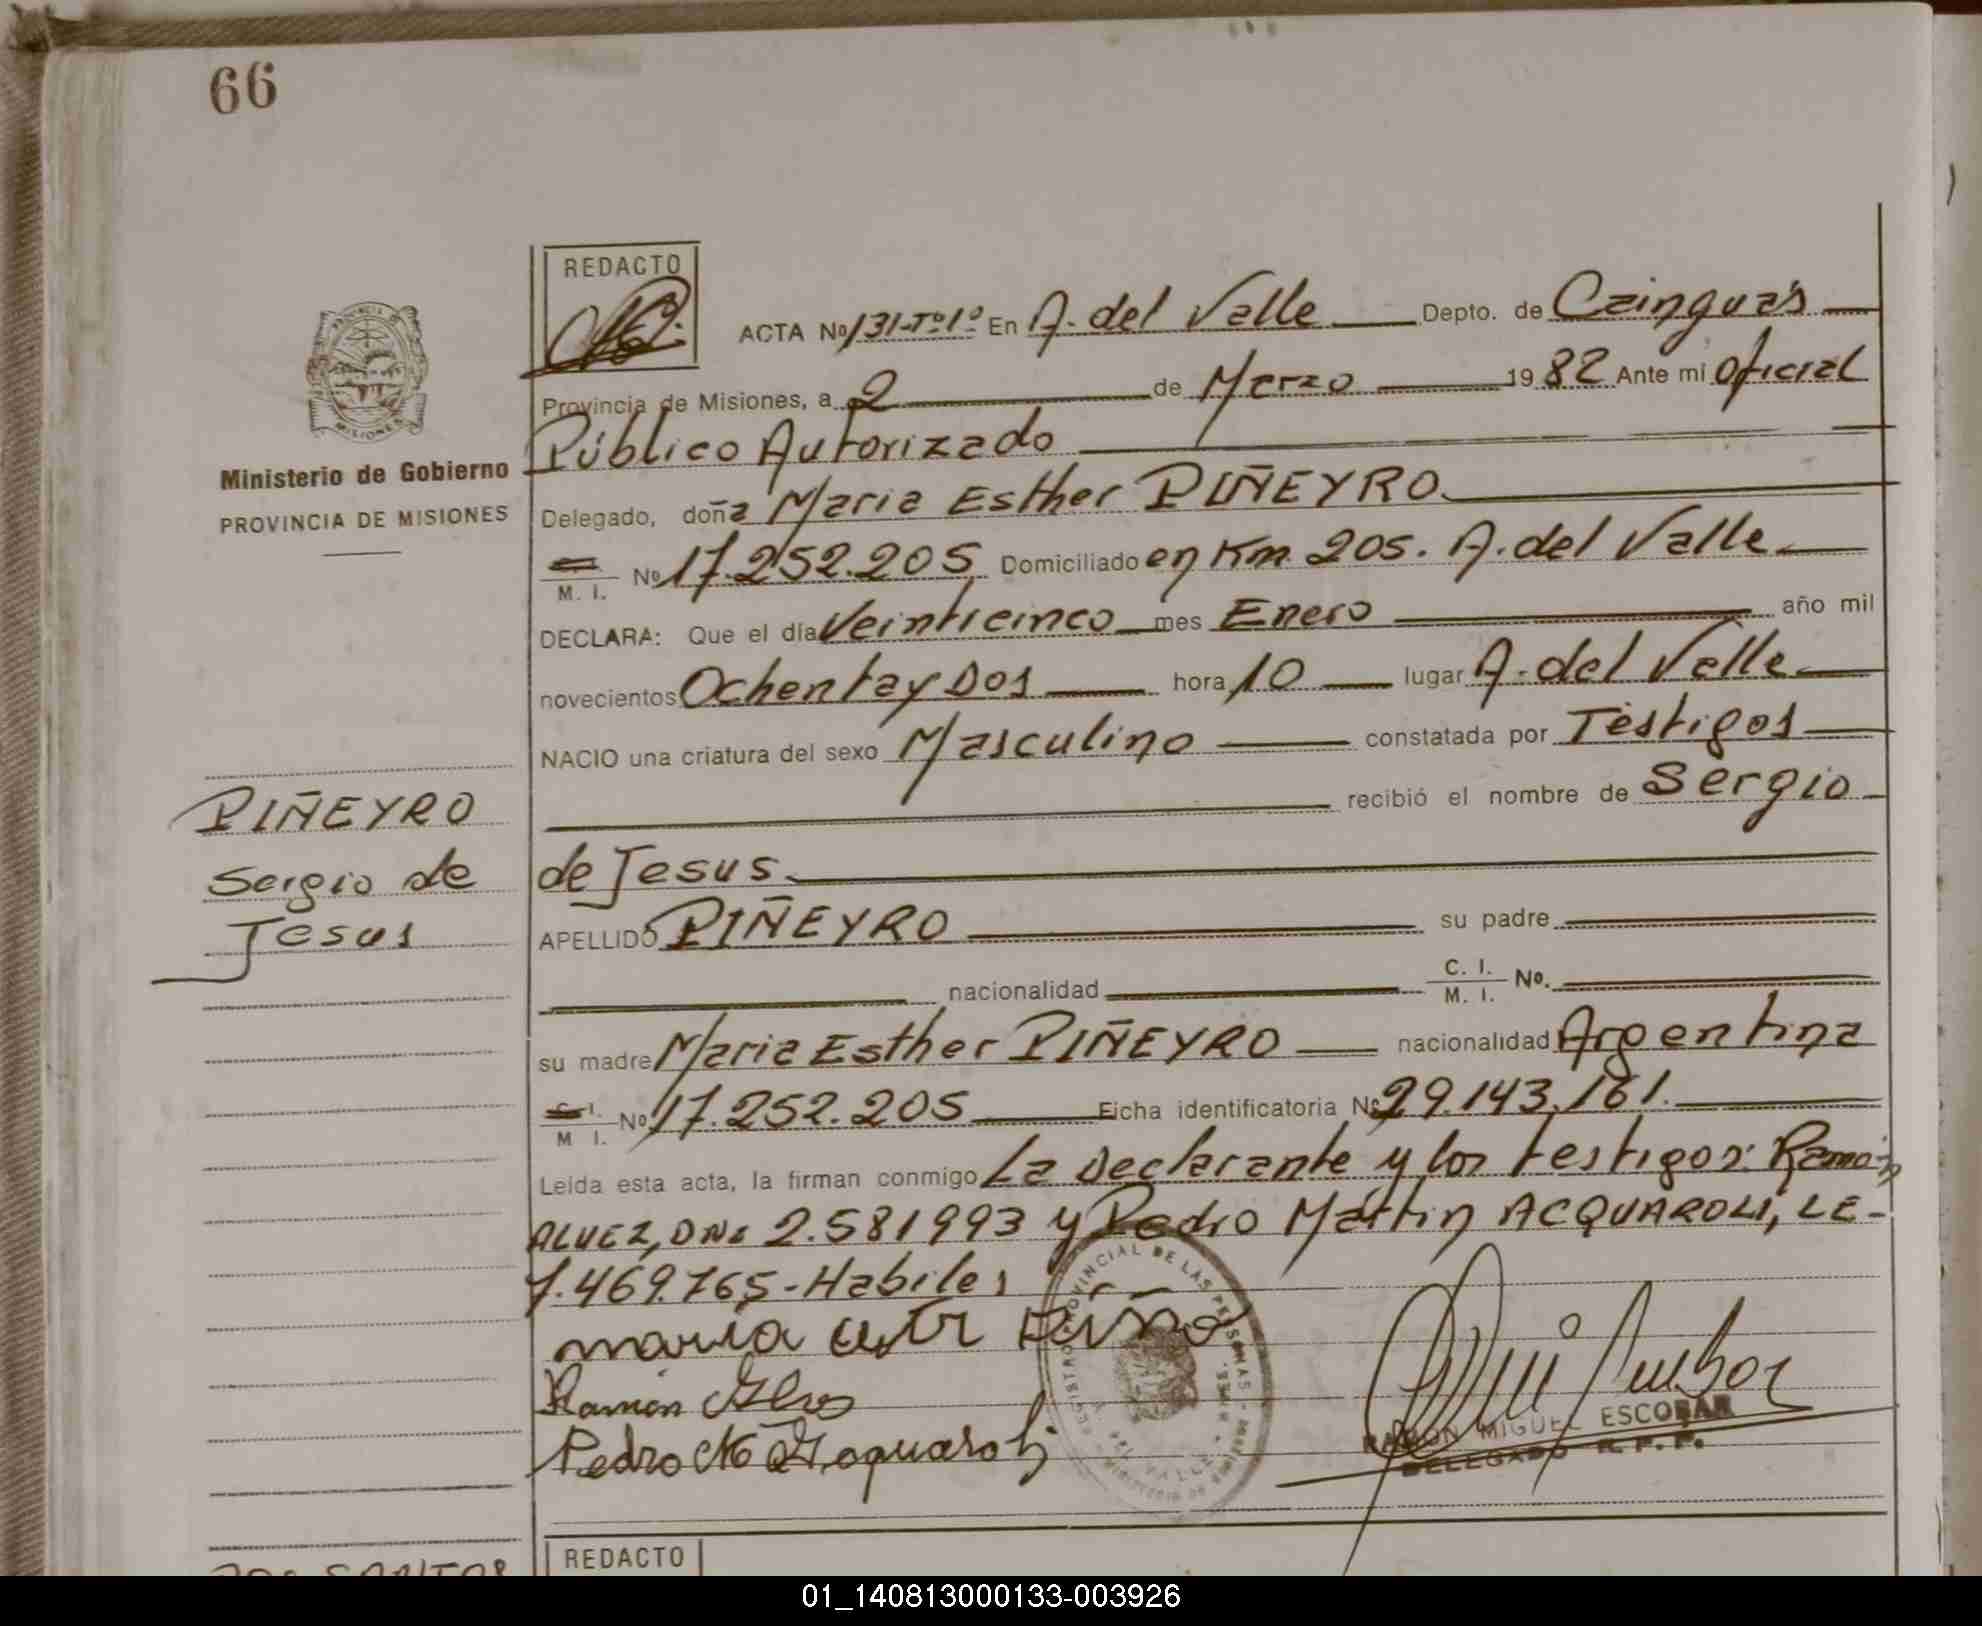 66
REDACTO
ACTA Nº 131-Tº1º En A. del Valle Depto. de Cainguás
Provincia de Misiones, a 2 de Marzo 1982 Ante mi Oficial
Público Autorizado
Ministerio de Gobierno
PROVINCIA DE MISIONES
Delegado, doña Maria Esther PIÑEYRO.
M. I. Nº 17.252.205 Domiciliado en Km. 205. A. del Valle.
DECLARA: Que el día Veinticinco mes Enero año mil
novecientos Ochenta y Dos hora 10 lugar A. del Valle.
NACIO una criatura del sexo Masculino constatada por Testigos
recibió el nombre de Sergio
de Jesus.
PIÑEYRO
Sergio de
Jesus
APELLIDO PIÑEYRO su padre
nacionalidad C. I. M. I. No.
su madre Maria Esther PIÑEYRO nacionalidad Argentina
C. I. M. I. Nº 17.252.205 Ficha identificatoria Nº 29.143.161.
Leída esta acta, la firman conmigo La Declarante y los testigos: Ramón
ALVEZ, DNI 2.581993 y Pedro Martin ACQUAROLI, LE-
7.469.765-Habiles
maria
Ramón
Pedro
REGISTRO PROVINCIAL DE LAS PERSONAS
RAMON MIGUEL ESCOBAR
DELEGADO R. P. P.
REDACTO
DOS SANTOS
01_140813000133-003926